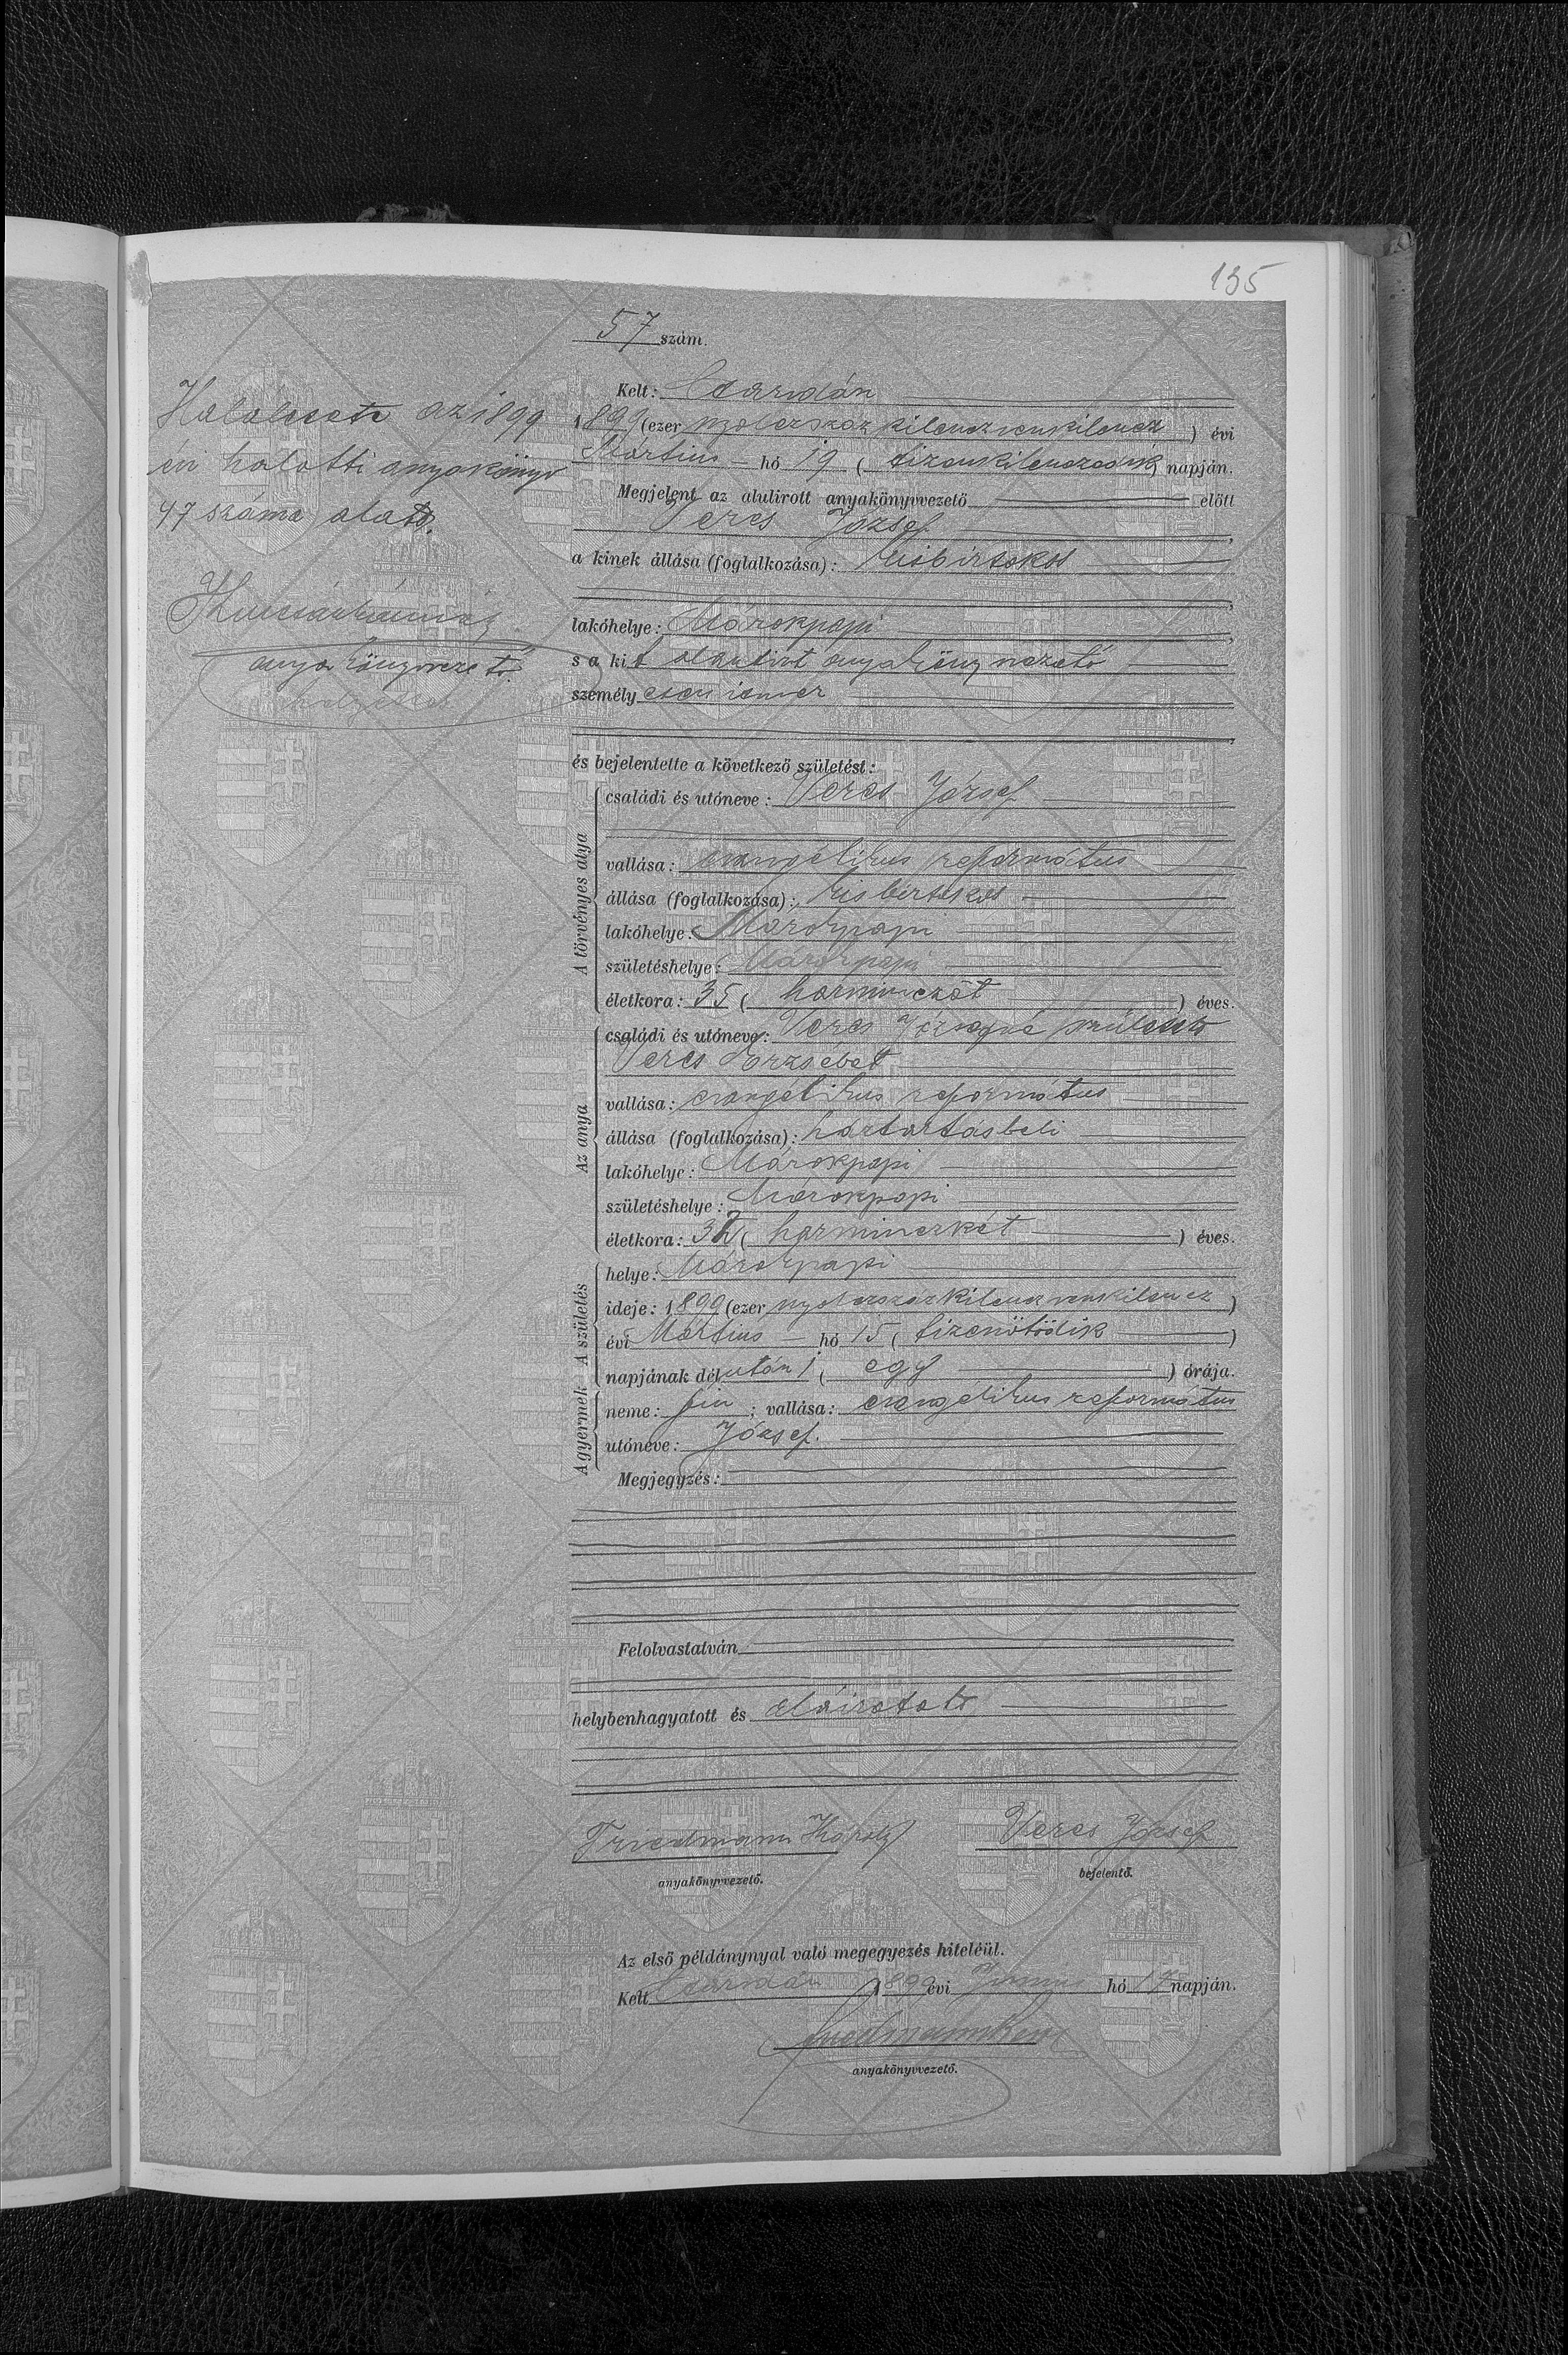 135
57 szám.
Kelt: Csarodán
1899 (ezer nyolczszáz kilenczvenkilencz) évi
Mártius hó 19 (tizenkilenczedik) napján.
Megjelent az alulirott anyakönyvvezető előtt
Veres József,
a kinek állása (foglalkozása): kisbirtokos
lakóhelye: Márokpapi,
s a kit alulirt anyakönyvvezető
személyesen ismer
és bejelentette a következő születést:
A törvényes atya
családi és utóneve: Veres József
vallása: evangélikus református
állása (foglalkozása): kisbirtokos
lakóhelye: Márokpapi
születéshelye: Márokpapi
életkora: 35 (harminczöt) éves.
Az anya
családi és utóneve: Veres Józsefné született
Veres Erzsébet
vallása: evangélikus református
állása (foglalkozása): háztartásbeli
lakóhelye: Márokpapi
születéshelye: Márokpapi
életkora: 32 (harminczkét) éves.
A születés
helye: Márokpapi
ideje: 1899 (ezer nyolczszázkilenczvenkilencz)
évi Mártius hó 15 (tizenötödik)
napjának délután 1 (egy) órája.
A gyermek
neme: fiú; vallása: evangelikus református
utóneve: József.
Megjegyzés:
Felolvastatván
helybenhagyatott és aláiratott
Friedmann Károly
anyakönyvvezető.
Veres József
bejelentő.
Az első példánynyal való megegyezés hiteléül.
Kelt Csarodán 1899 évi Junius hó 17 napján.
anyakönyvvezető.
Halálesete az 1899
évi halotti anyakönyv
47 száma alatt.
anyakönyvvezető